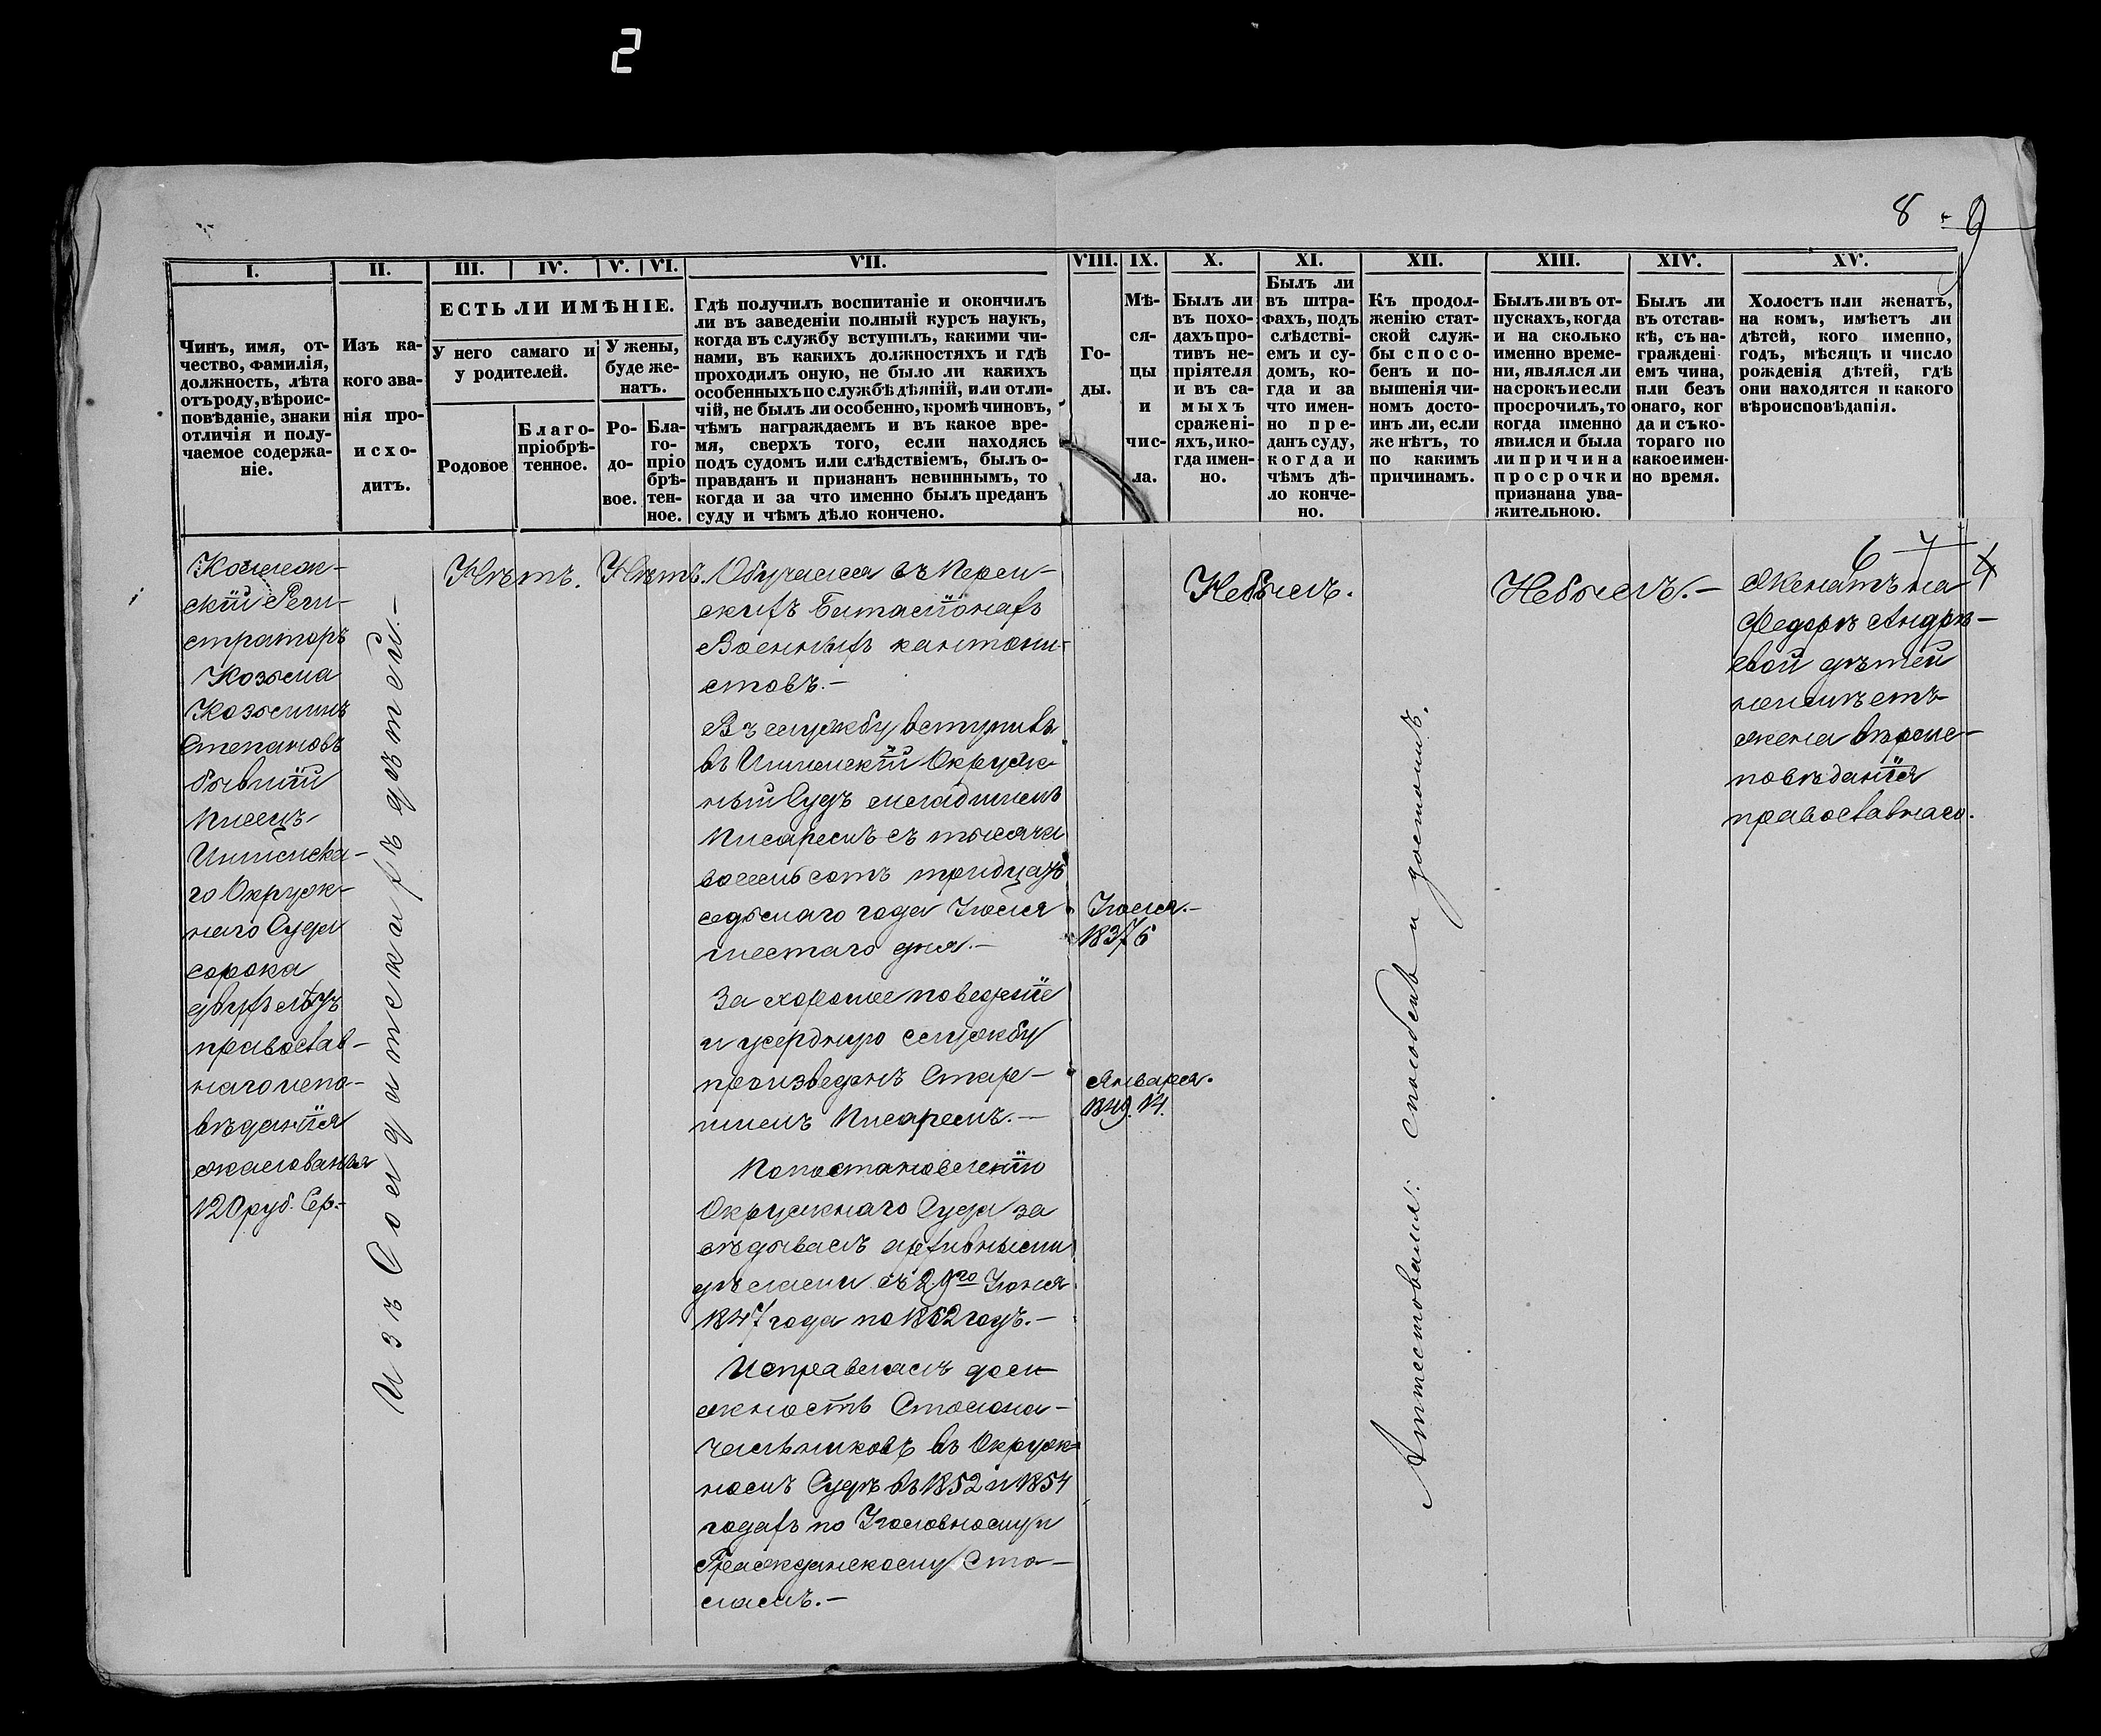 2
8 - 9
I.
Чинъ, имя, от-
чество, фамилія,
должность, лѣта
отъ роду, вѣроис-
повѣданіе, знаки
отличія и полу-
чаемое содержа-
ніе.
II.
Изъ ка-
кого зва-
нія про-
исхо-
дитъ.
III. IV. V. VI.
ЕСТЬ ЛИ ИМѢНІЕ.
У него самаго и
у родителей.
У жены,
буде же-
натъ.
Родовое
Благо-
пріобрѣ-
тенное.
Ро-
до-
вое.
Бла-
го-
прiо
брѣ-
тен-
ное.
VII.
Гдѣ получилъ воспитаніе и окончилъ
ли въ заведеніи полный курсъ наукъ,
когда въ службу вступилъ, какими чи-
нами, въ какихъ должностяхъ и гдѣ
проходилъ оную, не было ли какихъ
особенныхъ по службѣ дѣяній, или отли-
чій, не былъ ли особенно, кромѣ чиновъ,
чѣмъ награждаемъ и въ какое вре-
мя, сверхъ того, если находясь
подъ судомъ или слѣдствіемъ, былъ о-
правданъ и признанъ невиннымъ, то
когда и за что именно былъ преданъ
суду и чѣмъ дѣло кончено.
VIII.
Го-
ды.
IX.
Мѣ-
ся-
цы
и
чис-
ла.
X.
Былъ ли
въ похо-
дахъ про-
тивъ не-
пріятеля
и въ са-
мыхъ
сражені-
яхъ, и ко-
гда имен-
но.
XI.
Былъ ли
въ штра-
фахъ, подъ
слѣдстві-
емъ и су-
домъ, ко-
гда и за
что имен-
но пре-
данъ суду,
когда и
чѣмъ дѣ-
ло конче-
но.
XII.
Къ продол-
женію стат-
ской служ-
бы спосо-
бенъ и по-
вышенія чи-
номъ досто-
инъ ли, если
же нѣтъ, то
по какимъ
причинамъ.
XIII.
Былъ ли въ от-
пускахъ, когда
и на сколько
именно време-
ни, являлся ли
на срокъ и если
просрочилъ, то
когда именно
явился и была
ли причина
просрочки
признана ува-
жительною.
XIV.
Былъ ли
въ отстав-
кѣ, съ на-
граждені
емъ чина,
или безъ
онаго, ког
да и съ ко-
тораго по
какое имен-
но время.
XV.
Холостъ или женатъ,
на комъ, имѣетъ ли
дѣтей, кого именно,
годъ, мѣсяцъ и число
рожденія дѣтей, гдѣ
они находятся и какого
вѣроисповѣданія.
Коллеж-
скій Реги-
страторъ
Козьма
Козьминъ
Степановъ
бывшій
Писецъ
Ишимска-
го Окруж-
наго Суда
сорока
двухъ лѣтъ
православ-
наго испо-
вѣданія
жалованья
120 руб. Сер.-
Изъ Солдатскихъ дѣтей.-
Нѣтъ.
Нѣтъ.
Обучался въ Перм-
скихъ Баталіонахъ
Военныхъ кантони-
стовъ.-
Въ службу вступилъ
въ Ишимскій Окруж-
ный Судъ младшимъ
Писаремъ съ тысяча
восемь сотъ тридцать
седьмаго года Іюля
шестаго дня.-
За хорошее поведеніе
и усердную службу
произведенъ Стар-
шимъ Писаремъ.-
По постановленію
Окружнаго Суда за
вѣдывалъ архивными
дѣлами съ 29го Іюня
1847 года по 1862 годъ.-
Исправлялъ дол-
жность Столона-
чальниковъ въ Окруж-
номъ Судѣ въ 1852 и 1854
годахъ по Уголовному и
Гражданскому Сто-
ламъ.-
Іюля.-
1837 6
Января.
1849. 14.
Небылъ.
Аттестовался: способенъ и достоинъ.
Небылъ.-
6 7
4
Женатъ на
Федорѣ Андрѣ-
евой дѣтей
неимѣетъ
жена вѣроис-
повѣданія
православнаго.